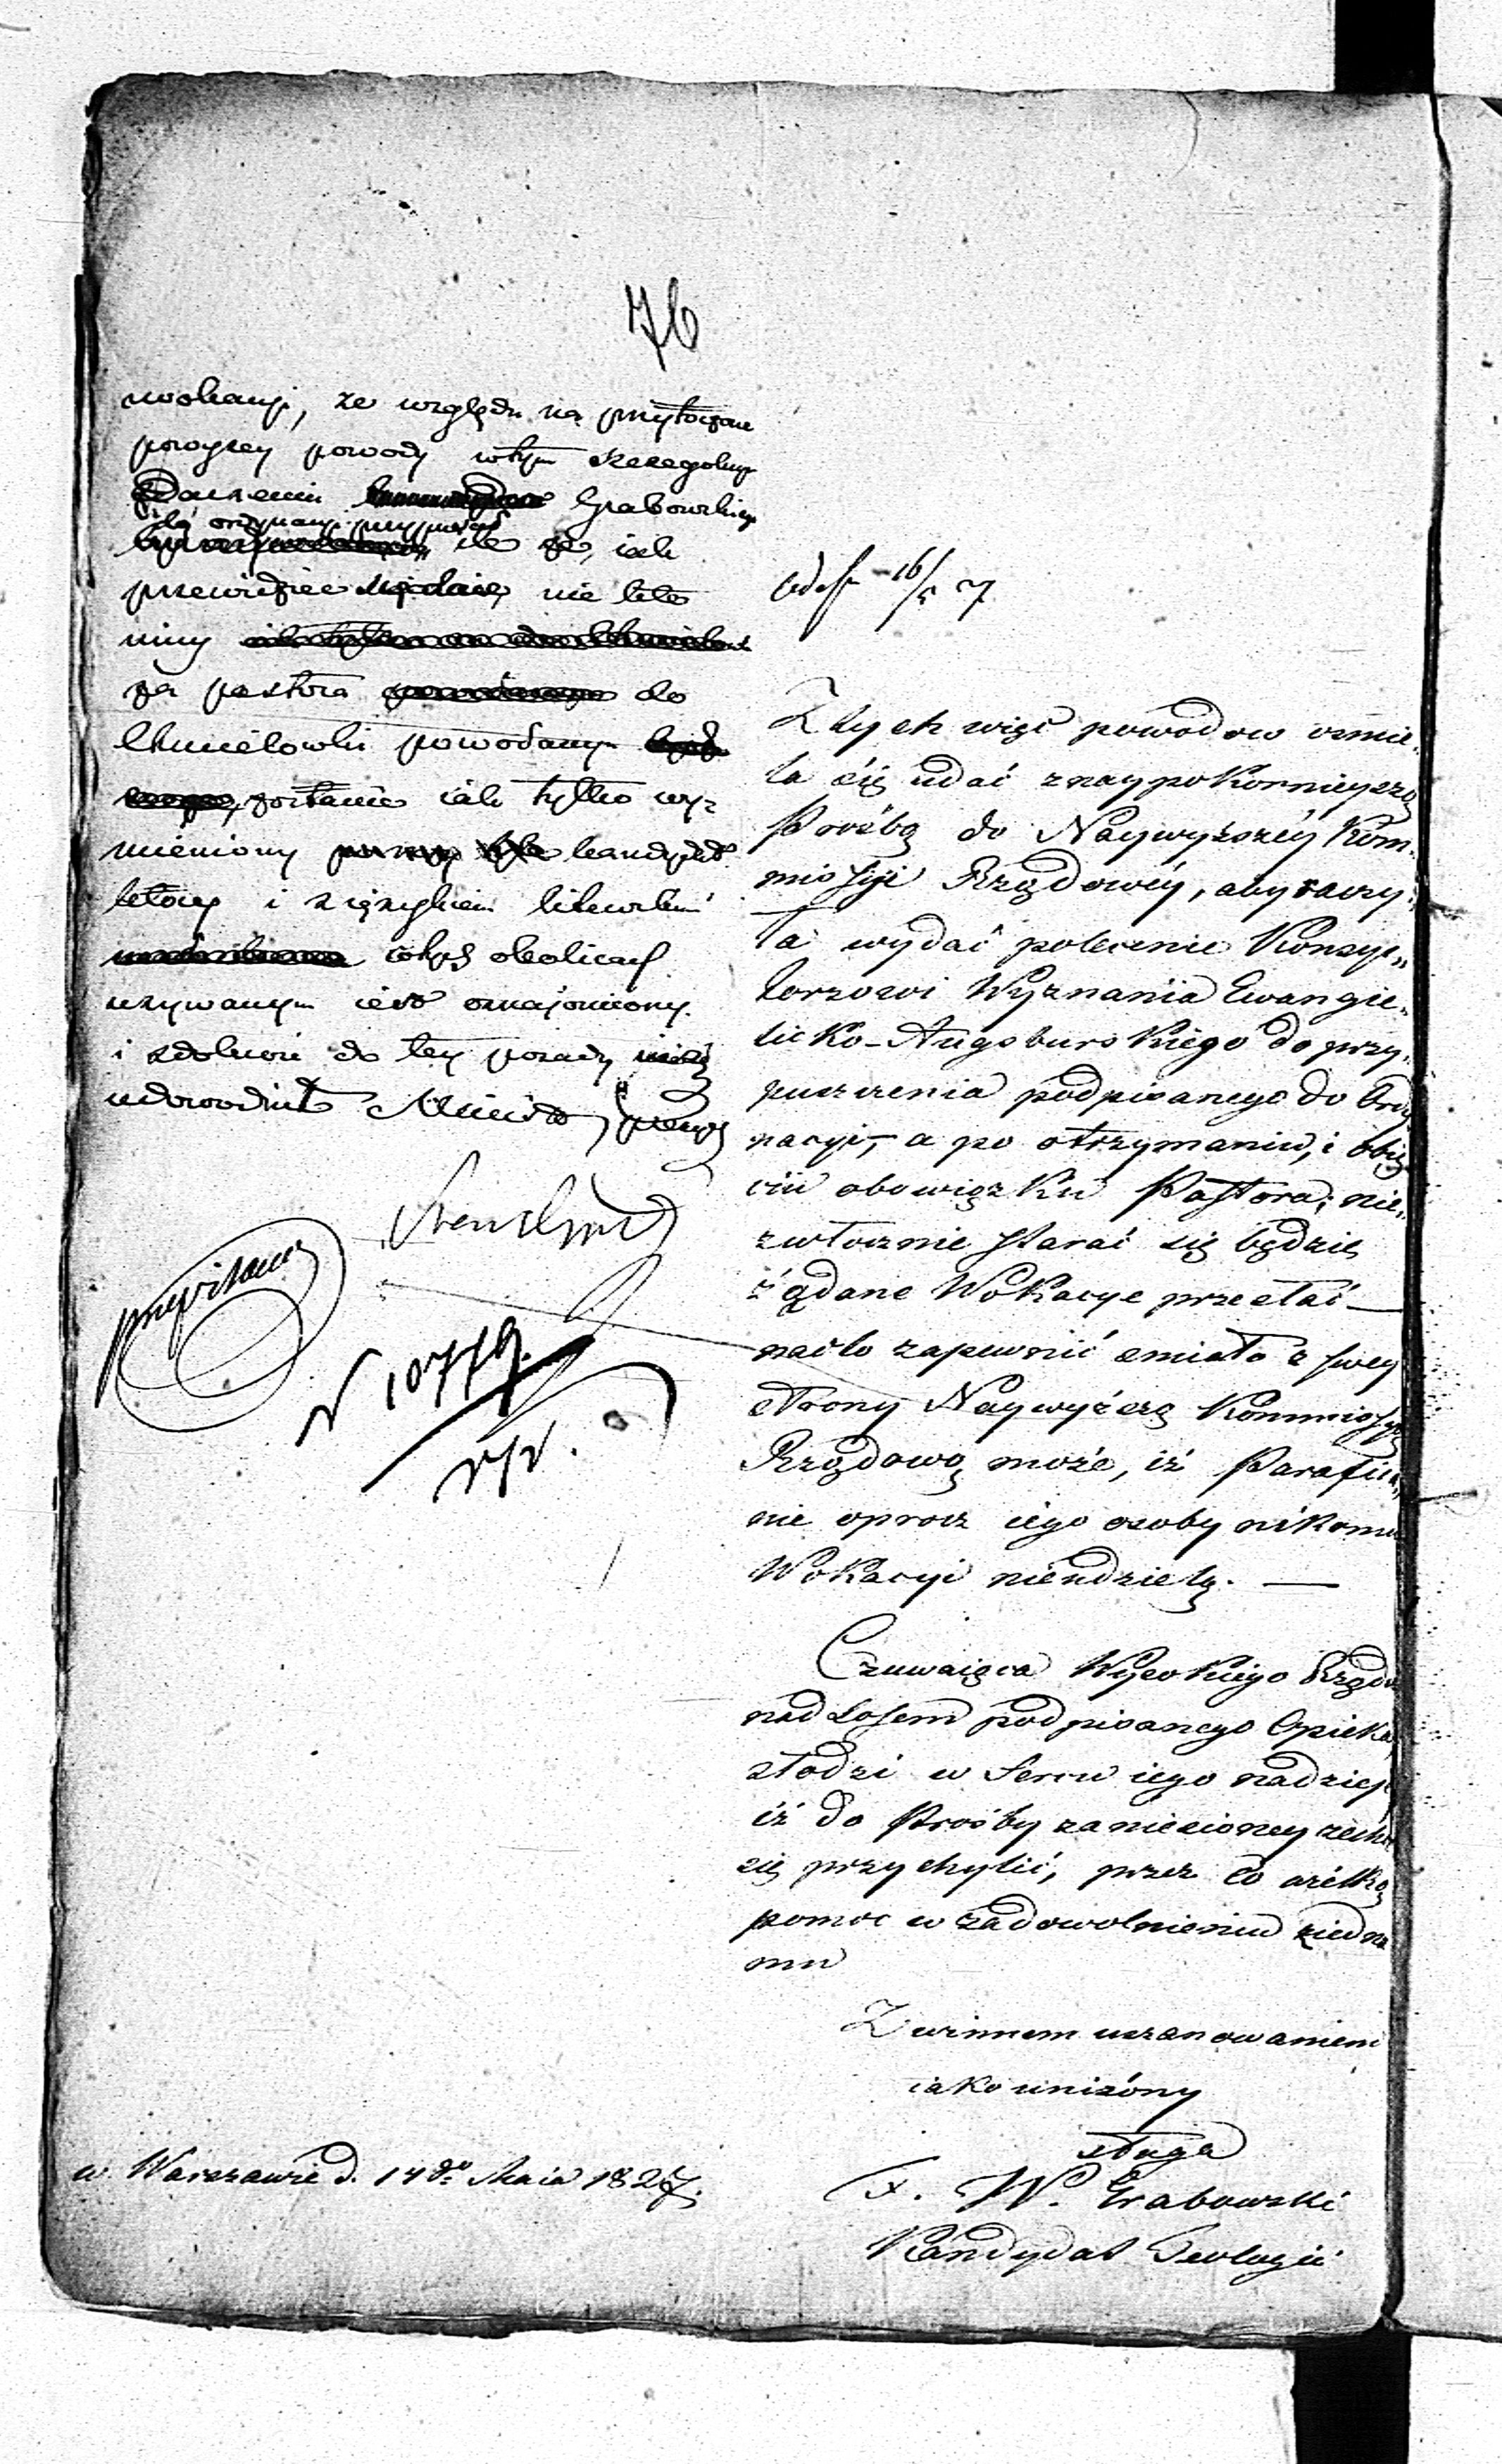 76
wokacyi, ze względu na przytoczone
powyżey powody w tym szczegolnym
zdarzeniu Grabowskiego
do ordynacyi przypuścić
ile że, iak
przewidzieć nie kto
inny
za pastora do
Chmielowki powołanym
zostanie iak tylko wy-
mieniony kandydat
ktory i z ięzykiem litewskim
w tych okolicach
używanym iest oznajomiony.
i zdolność do tey posady
udowodnił
przepisano
N 10779.
16/5 27
Z tych więc powodow ośmie„
la się udać z naypokornieyszą
Prośbą do Naywyższéy Kom„
missyi Rządowéy, aby raczy„
ła wydać polecenie Konsys„
torzowi Wyznania Ewangie„
licko-Augsburskiego do przy„
puszczenia podpisanego do Ordy
nacyi, a po otrzymaniu, i obię
ciu obowiązku Pastora; nie„
zwłocznie starać się będzie
żądane Wokacye przesłać —
nadto zapewnić śmiało z swey
strony Naywyższą Kommissyę
Rządową może, iż Parafia„
nie oprocz iego osoby nikomu
Wokacyi nieudzielą. —
Czuwaiąca Wysokiego Rządu
nad Losem podpisanego Opieka,
słodzi w Sercu iego nadzieję
iż do Prośby zaniesioney zechce
się przychylić, przez co wielką
pomoc w zadowolnieniu ziedna
mu
Z winnem uszanowaniem
iako uniżony
sługa
F. W. Grabowski
Kandydat Teologii
w Warszawie d. 14go Maia 1827.